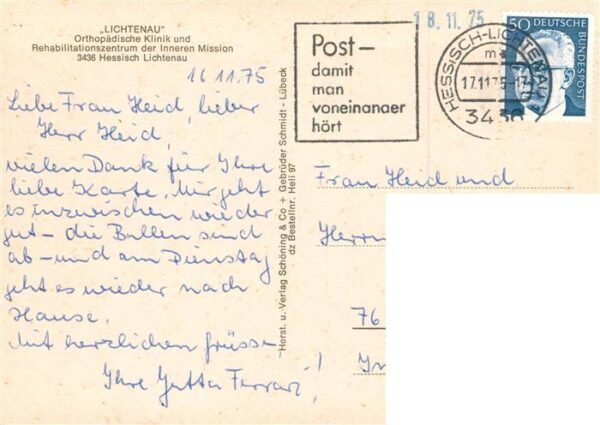 „LICHTENAU"
Orthopädische Klinik und
Rehabilitationszentrum der Inneren Mission
3436 Hessisch Lichtenau
16 11.75
Liebe Frau Heid, lieber
Herr Heid,
vielen Dank für Ihre
liebe Karte. Mir geht
es inzwischen wieder
gut – die Ballen sind
ab – und am Dienstag
geht es wieder nach
Hause.
Mit herzlichen Grüssen,
Ihre Jutta Ferrari!
Herst. u. Verlag Schöning & Co + Gebrüder Schmidt - Lübeck
dz Bestellnr. Heli 97
18.11.75
Post –
damit
man
voneinander
hört
HESSISCH-LICHTENAU
17.11.75
3436
50 DEUTSCHE
BUNDESPOST
Frau Heid und
Herrn
76